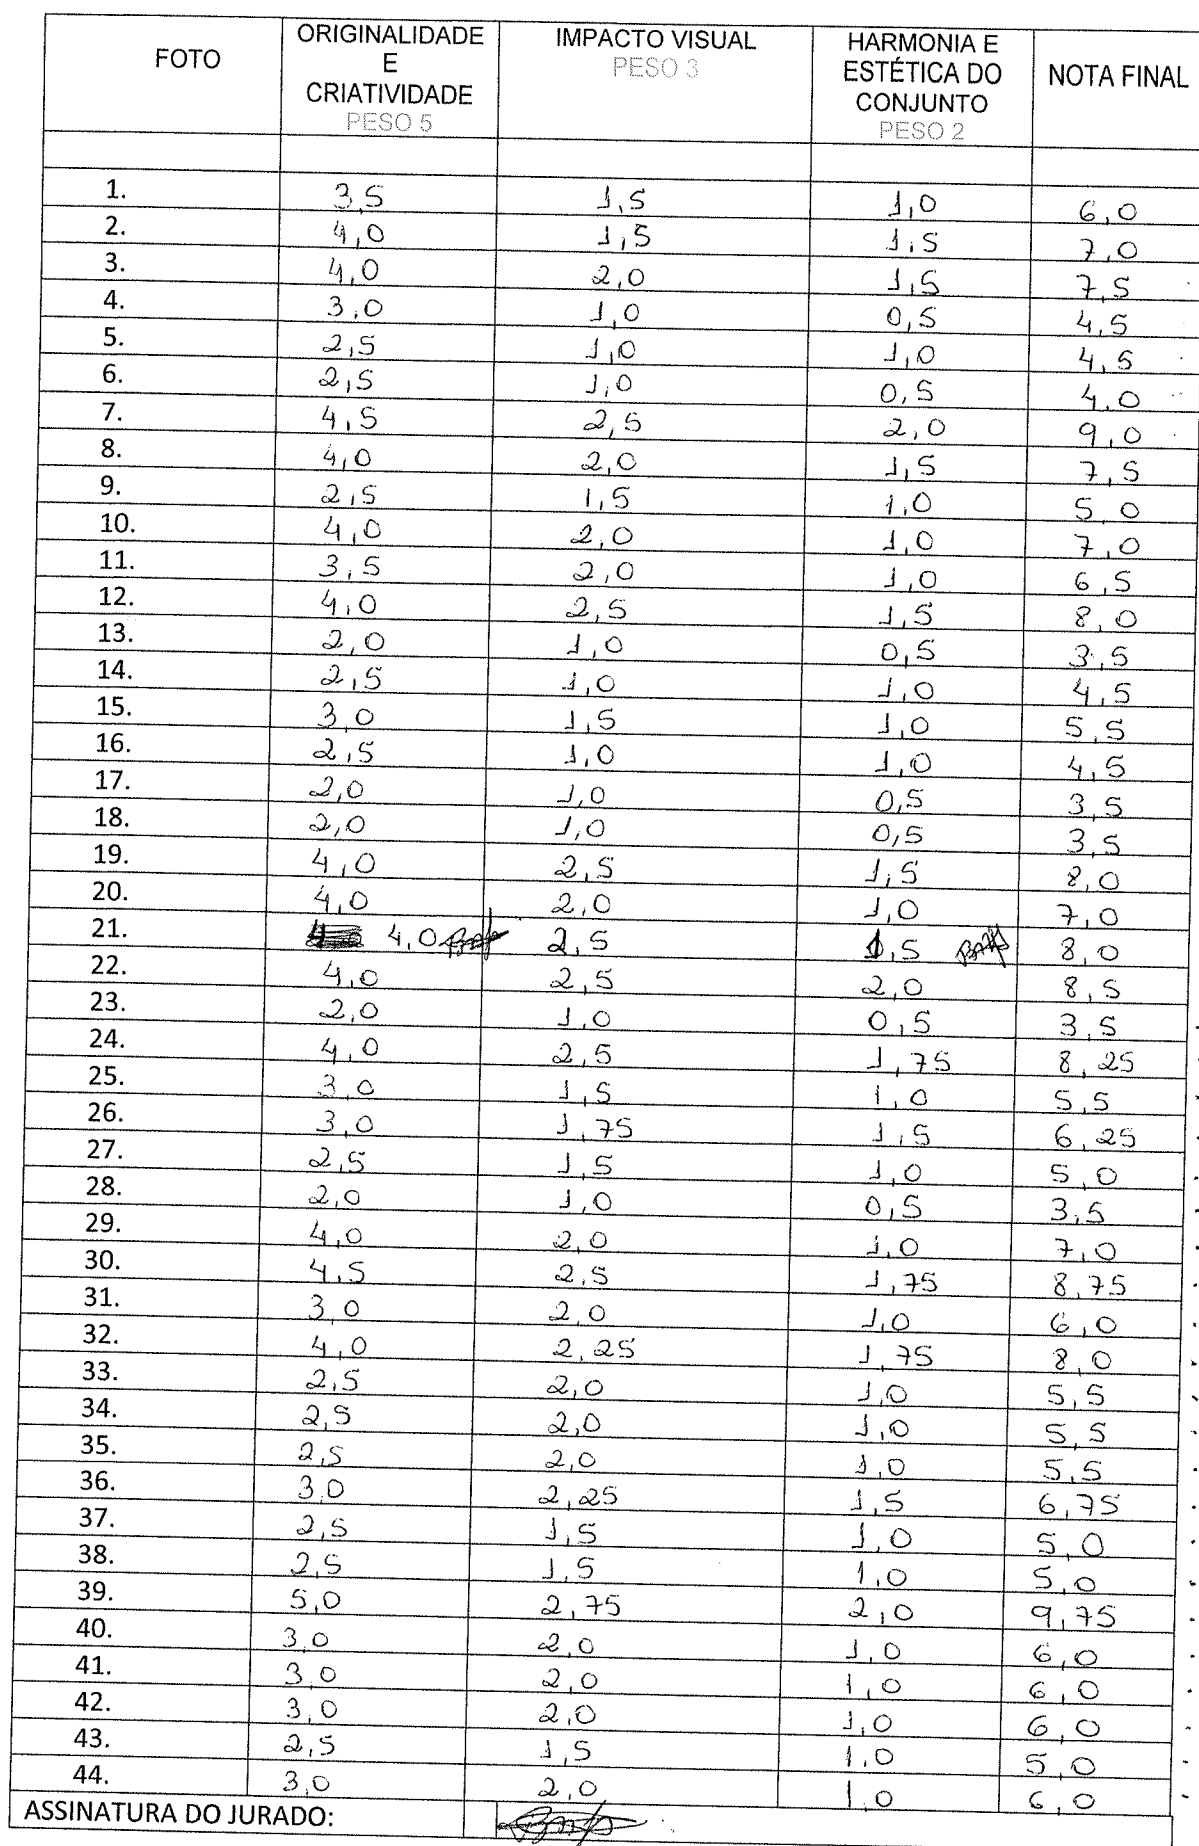 FOTO ORIGINALIDADE E CRIATIVIDADE PESO 5 IMPACTO VISUAL PESO 3 HARMONIA E ESTÉTICA DO CONJUNTO PESO 2 NOTA FINAL
1. 3,5 1,5 1,0 6,0
2. 4,0 1,5 1,5 7,0
3. 4,0 2,0 1,5 7,5
4. 3,0 1,0 0,5 4,5
5. 2,5 1,0 1,0 4,5
6. 2,5 1,0 0,5 4,0
7. 4,5 2,5 2,0 9,0
8. 4,0 2,0 1,5 7,5
9. 2,5 1,5 1,0 5,0
10. 4,0 2,0 1,0 7,0
11. 3,5 2,0 1,0 6,5
12. 4,0 2,5 1,5 8,0
13. 2,0 1,0 0,5 3,5
14. 2,5 1,0 1,0 4,5
15. 3,0 1,5 1,0 5,5
16. 2,5 1,0 1,0 4,5
17. 2,0 1,0 0,5 3,5
18. 2,0 1,0 0,5 3,5
19. 4,0 2,5 1,5 8,0
20. 4,0 2,0 1,0 7,0
21. 4,0 2,5 1,5 8,0
22. 4,0 2,5 2,0 8,5
23. 2,0 1,0 0,5 3,5
24. 4,0 2,5 1,75 8,25
25. 3,0 1,5 1,0 5,5
26. 3,0 1,75 1,5 6,25
27. 2,5 1,5 1,0 5,0
28. 2,0 1,0 0,5 3,5
29. 4,0 2,0 1,0 7,0
30. 4,5 2,5 1,75 8,75
31. 3,0 2,0 1,0 6,0
32. 4,0 2,25 1,75 8,0
33. 2,5 2,0 1,0 5,5
34. 2,5 2,0 1,0 5,5
35. 2,5 2,0 1,0 5,5
36. 3,0 2,25 1,5 6,75
37. 2,5 1,5 1,0 5,0
38. 2,5 1,5 1,0 5,0
39. 5,0 2,75 2,0 9,75
40. 3,0 2,0 1,0 6,0
41. 3,0 2,0 1,0 6,0
42. 3,0 2,0 1,0 6,0
43. 2,5 1,5 1,0 5,0
44. 3,0 2,0 1,0 6,0
ASSINATURA DO JURADO: